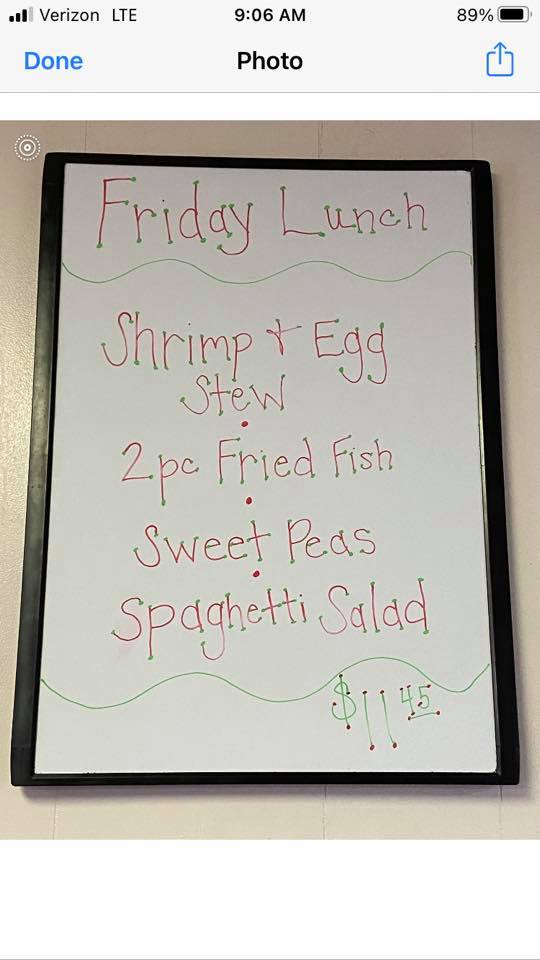 Verizon LTE 9:06 AM 89%
Done Photo
Friday Lunch
Shrimp + Egg
Stew
2pc Fried Fish
Sweet Peas
Spaghetti Salad
$11 45